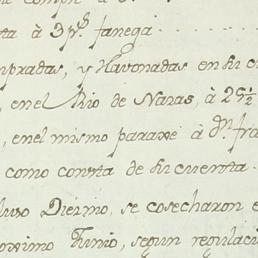 ta à 3 p.s fanega
mpradas, y Havonadas en hi c
, en el Rio de Naras, à 29½
, en el mismo paraxe à d.n fra
como consta de hi cuenta
luvo Diezmo, se cosecharon e
oximo Junio, segun regulaci